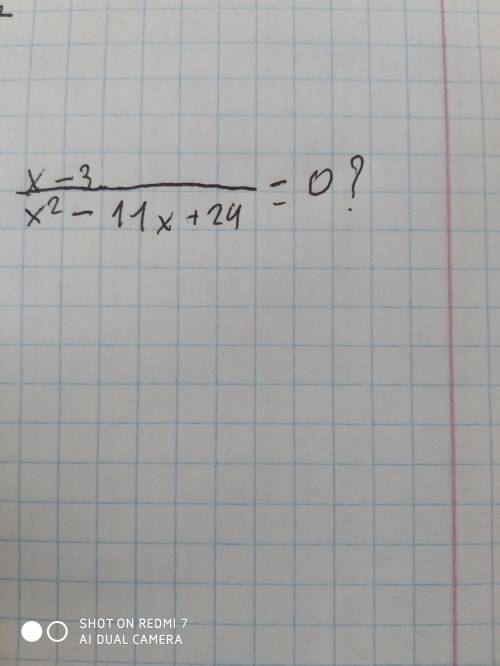 x - 3
x² - 11x + 24 = 0?
SHOT ON REDMI 7
AI DUAL CAMERA